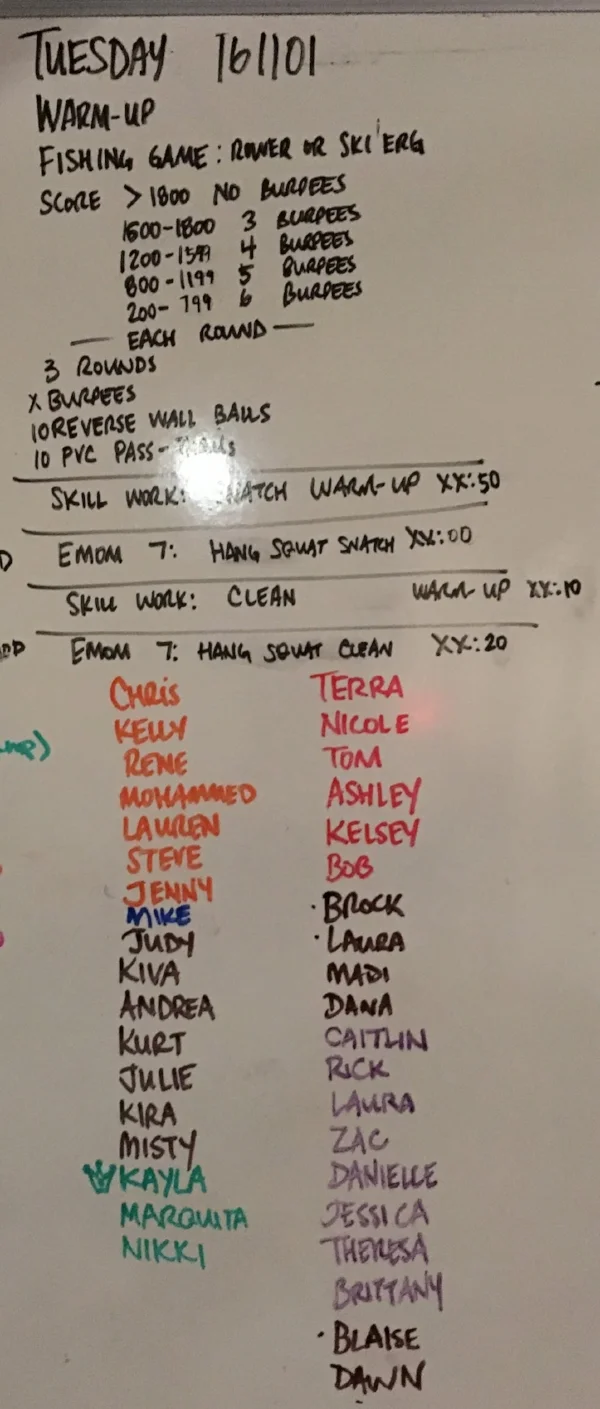 TUESDAY 161101
WARM-UP
FISHING GAME: ROWER OR SKI ERG
SCORE > 1800 NO BURPEES
1600-1800 3 BURPEES
1200-1599 4 BURPEES
800-1199 5 BURPEES
200-799 6 BURPEES
— EACH ROUND —
3 ROUNDS
X BURPEES
10 REVERSE WALL BALLS
10 PVC PASS-
SKILL WORK: SNATCH WARM-UP XX:50
EMOM 7: HANG SQUAT SNATCH XX:00
SKILL WORK: CLEAN WARM-UP XX:10
EMOM 7: HANG SQUAT CLEAN XX:20
CHRIS
KELLY
RENE
MOHAMMED
LAUREN
STEVE
JENNY
MIKE
JUDY
KIVA
ANDREA
KURT
JULIE
KIRA
MISTY
KAYLA
MARQUITA
NIKKI
TERRA
NICOLE
TOM
ASHLEY
KELSEY
BOB
· BROCK
· LAURA
MADI
DANA
CAITLIN
RICK
LAURA
ZAC
DANIELLE
JESSICA
THERESA
BRITTANY
· BLAISE
DAWN